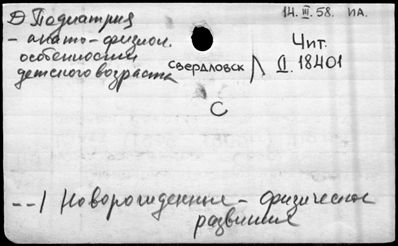 Д Педиатрия
14. III. 58. ИА.
- анато-физиол.
особенности
детского возраста
Свердловск
Чит.
Д. 18401
С
--/ Новорожденные - физическое
развитие